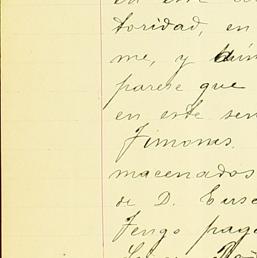 toridad, en
me, y
parese que
en este sen
Jimones.
macenados
de D. Euse
Tengo pag